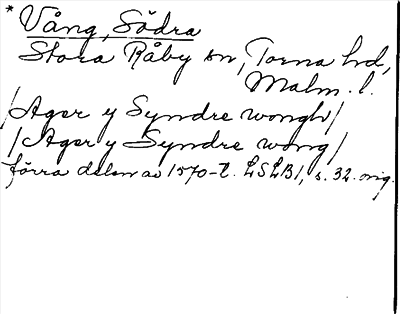 * Vång, Södra
Stora Råby sn, Torna hd,
Malm. l.
/Ager y Syndre wongh/
/Ager y Syndre wong/
förra delen av 1570-t. LSLB1, s. 32. orig.